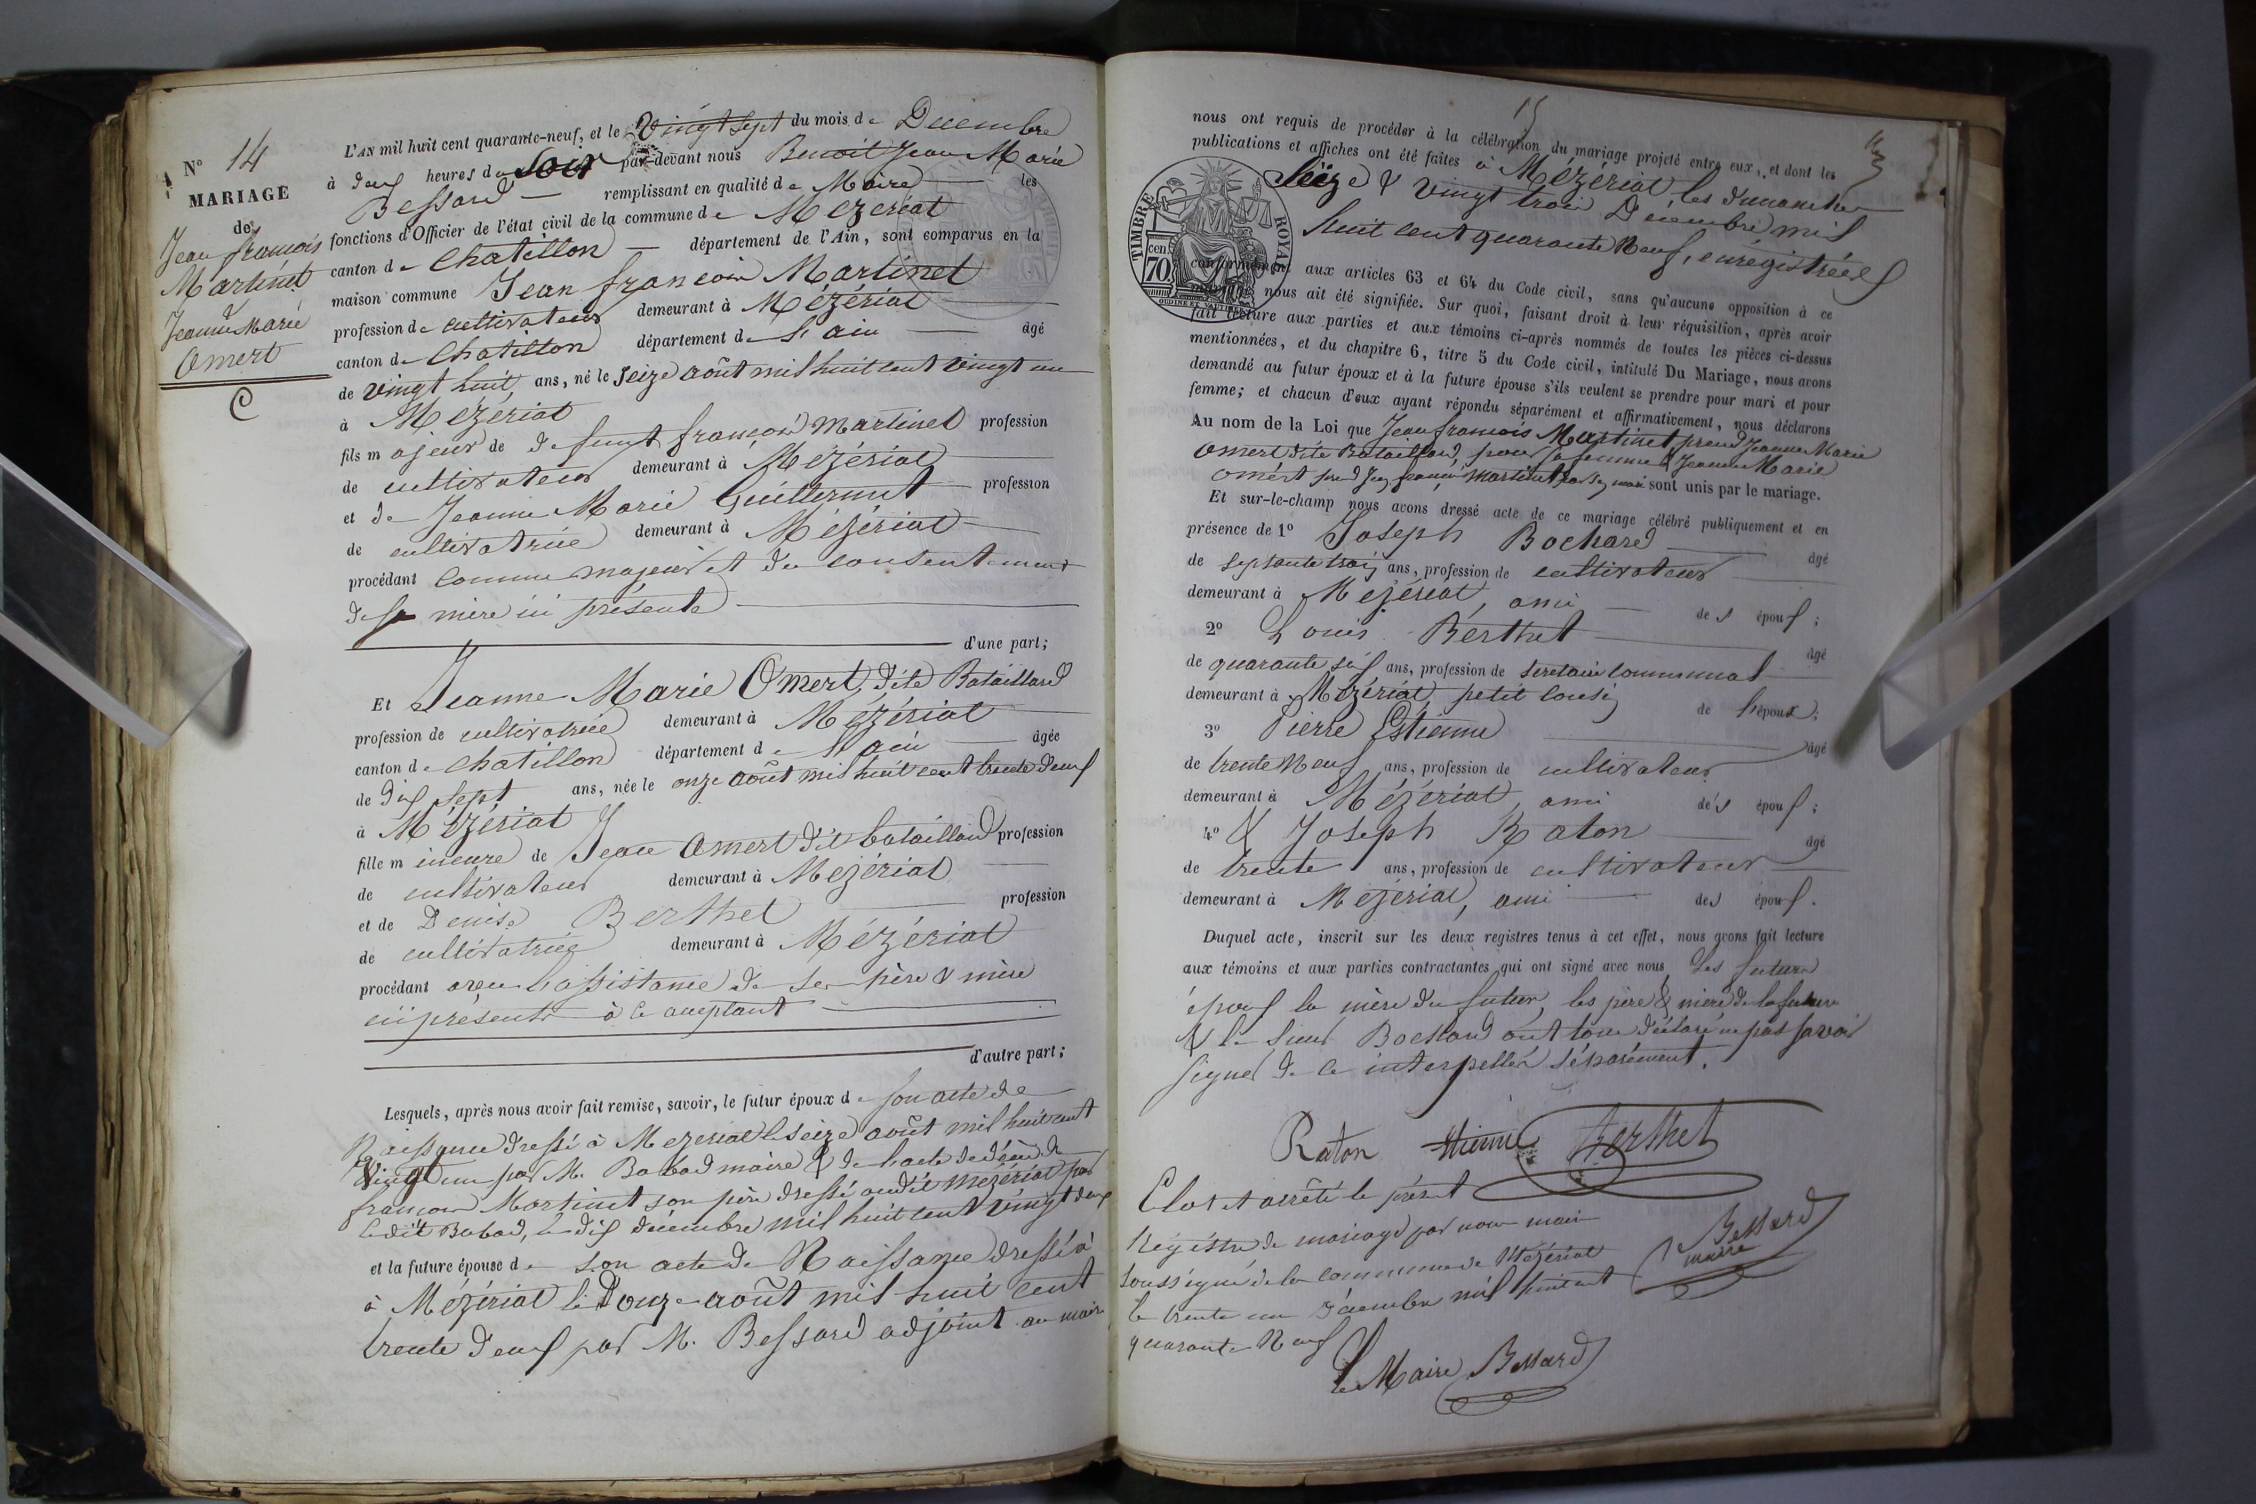 N° 14
MARIAGE
de
Jean françois
Martinet
Jeanne Marie
Omert
C
L'AN mil huit cent quarante-neuf, et le Vingt sept du mois de Decembre
à deux heures du Soir par-devant nous Benoit Jean Marie
Bessard remplissant en qualité de Maire les
fonctions d'Officier de l'état civil de la commune de Mezeriat
canton de Chatillon département de l'Ain, sont comparus en la
maison commune Jean françois Martinet
profession de cultivateur demeurant à Mézériat
canton de Chatillon département de l'ain âgé
de vingt huit ans, né le Seize août mil huit cent vingt un
à Mézériat
fils majeur de defunt françois Martinet profession
de cultivateur demeurant à Mézériat
et de Jeanne Marie Guillermet profession
de cultivatrice demeurant à Mézériat
procédant comme majeur et du consentement
de sa mère ici présente
d'une part;
Et Jeanne Marie Omert, dite Bataillard
profession de cultivatrice demeurant à Mézériat
canton de Chatillon département de l'ain âgée
de dix sept ans, née le onze août mil huit cent trente deux
à Mézériat
fille mineure de Jean Omert dit bataillard profession
de cultivateur demeurant à Mézériat
et de Denise Berthet profession
de cultivatrice demeurant à Mézériat
procédant avec l'assistance de ses père & mère
ici présents à ce acceptant
d'autre part;
Lesquels, après nous avoir fait remise, savoir, le futur époux de son acte de
Naissance dressé à Mezeriat le seize août mil huit cent
Vingt un par M. Babad maire & de l'acte de décès de
françois Martinet son père dressé audit Mézériat par
ledit Babad, le dix décembre mil huit cent vingt deux
et la future épouse de son acte de Naissance dressé à
à Mézériat le Douze août mil huit cent
trente deux par M. Bessard adjoint au maire
15
nous ont requis de procéder à la célébration du mariage projeté entre eux, et dont les
publications et affiches ont été faites à Mézériat les dimanches
Seize & vingt trois Décembre mil
huit cent quarante Neuf, enrégistrées
TIMBRE ROYAL
cen. 70
conformément aux articles 63 et 64 du Code civil, sans qu'aucune opposition à ce
mariage nous ait été signifiée. Sur quoi, faisant droit à leur réquisition, après avoir
fait lecture aux parties et aux témoins ci-après nommés de toutes les pièces ci-dessus
mentionnées, et du chapitre 6, titre 5 du Code civil, intitulé Du Mariage, nous avons
demandé au futur époux et à la future épouse s'ils veulent se prendre pour mari et pour
femme; et chacun d'eux ayant répondu séparément et affirmativement, nous déclarons
Au nom de la Loi que Jean françois Martinet prend Jeanne Marie
Omert dite Bataillard, pour sa femme & Jeanne Marie
Omért prend Jean françois Martinet pour son mari sont unis par le mariage.
Et sur-le-champ nous avons dressé acte de ce mariage célébré publiquement et en
présence de 1° Joseph Bochard âgé
de septante trois ans, profession de cultivateur
demeurant à Mézériat, ami des époux;
2° Louis Berthet âgé
de quarante six ans, profession de secretaire communal
demeurant à Mézériat, petit cousin de l'époux;
3° Pierre Estienne âgé
de trente Neuf ans, profession de cultivateur
demeurant à Mézériat, ami des époux;
4° & Joseph Raton âgé
de trente ans, profession de cultivateur
demeurant à Mézériat, ami des époux.
Duquel acte, inscrit sur les deux registres tenus à cet effet, nous avons fait lecture
aux témoins et aux parties contractantes qui ont signé avec nous Les futurs
époux la mère du futur, les père & mère de la future
& le sieur Bochard ont tous déclaré ne pas savoir
signer de ce interpellés séparément.
Raton Etienne Berthet
Clos et arrêté le présent
Régistre de mariage par nous maire
soussigné de la commune de Mézériat
le trente un décembre mil huit cent
quarante Neuf
Bessard
maire
Le Maire Bessard